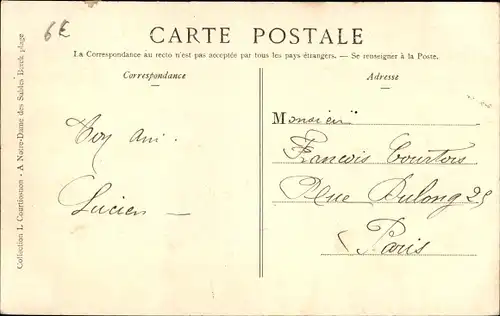 6€
CARTE POSTALE
La Correspondance au recto n'est pas acceptée par tous les pays étrangers. — Se renseigner à la Poste.
Correspondance
Adresse
Ton ami.
Lucien —
Monsieur
François Courtois
Rue Dulong 25
Paris
Collection L. Courtioonen - A Notre-Dame des Sables Berck plage